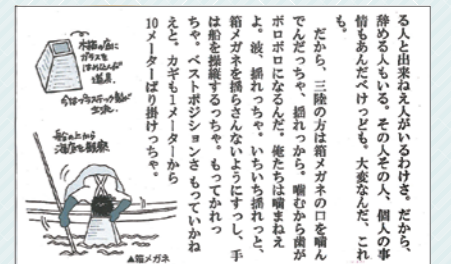 る人と出来ねえ人がいるわけさ。だから、
辞める人もいる。その人その人、個人の事
情もあんだべけっども。大変なんだ、これ
も。
だから、三陸の方は箱メガネの口を噛ん
でんだっちゃ、揺れっから。噛むから歯が
ボロボロになるんだ。俺たちは噛まねえ
よ。波、揺れっちゃ。いちいち揺れっと、
箱メガネを揺らさんないようにすっし、手
は船を操縦するっちゃ。もってかれっ
ちゃ。ベストポジションさもっていかね
えと。カギも1メーターから
10メーターばり掛けっちゃ。
木箱の底に
ガラスを
はめ込んだ
道具。
今はプラスチック製が
主流。
船の上から
海底を観察
▲箱メガネ